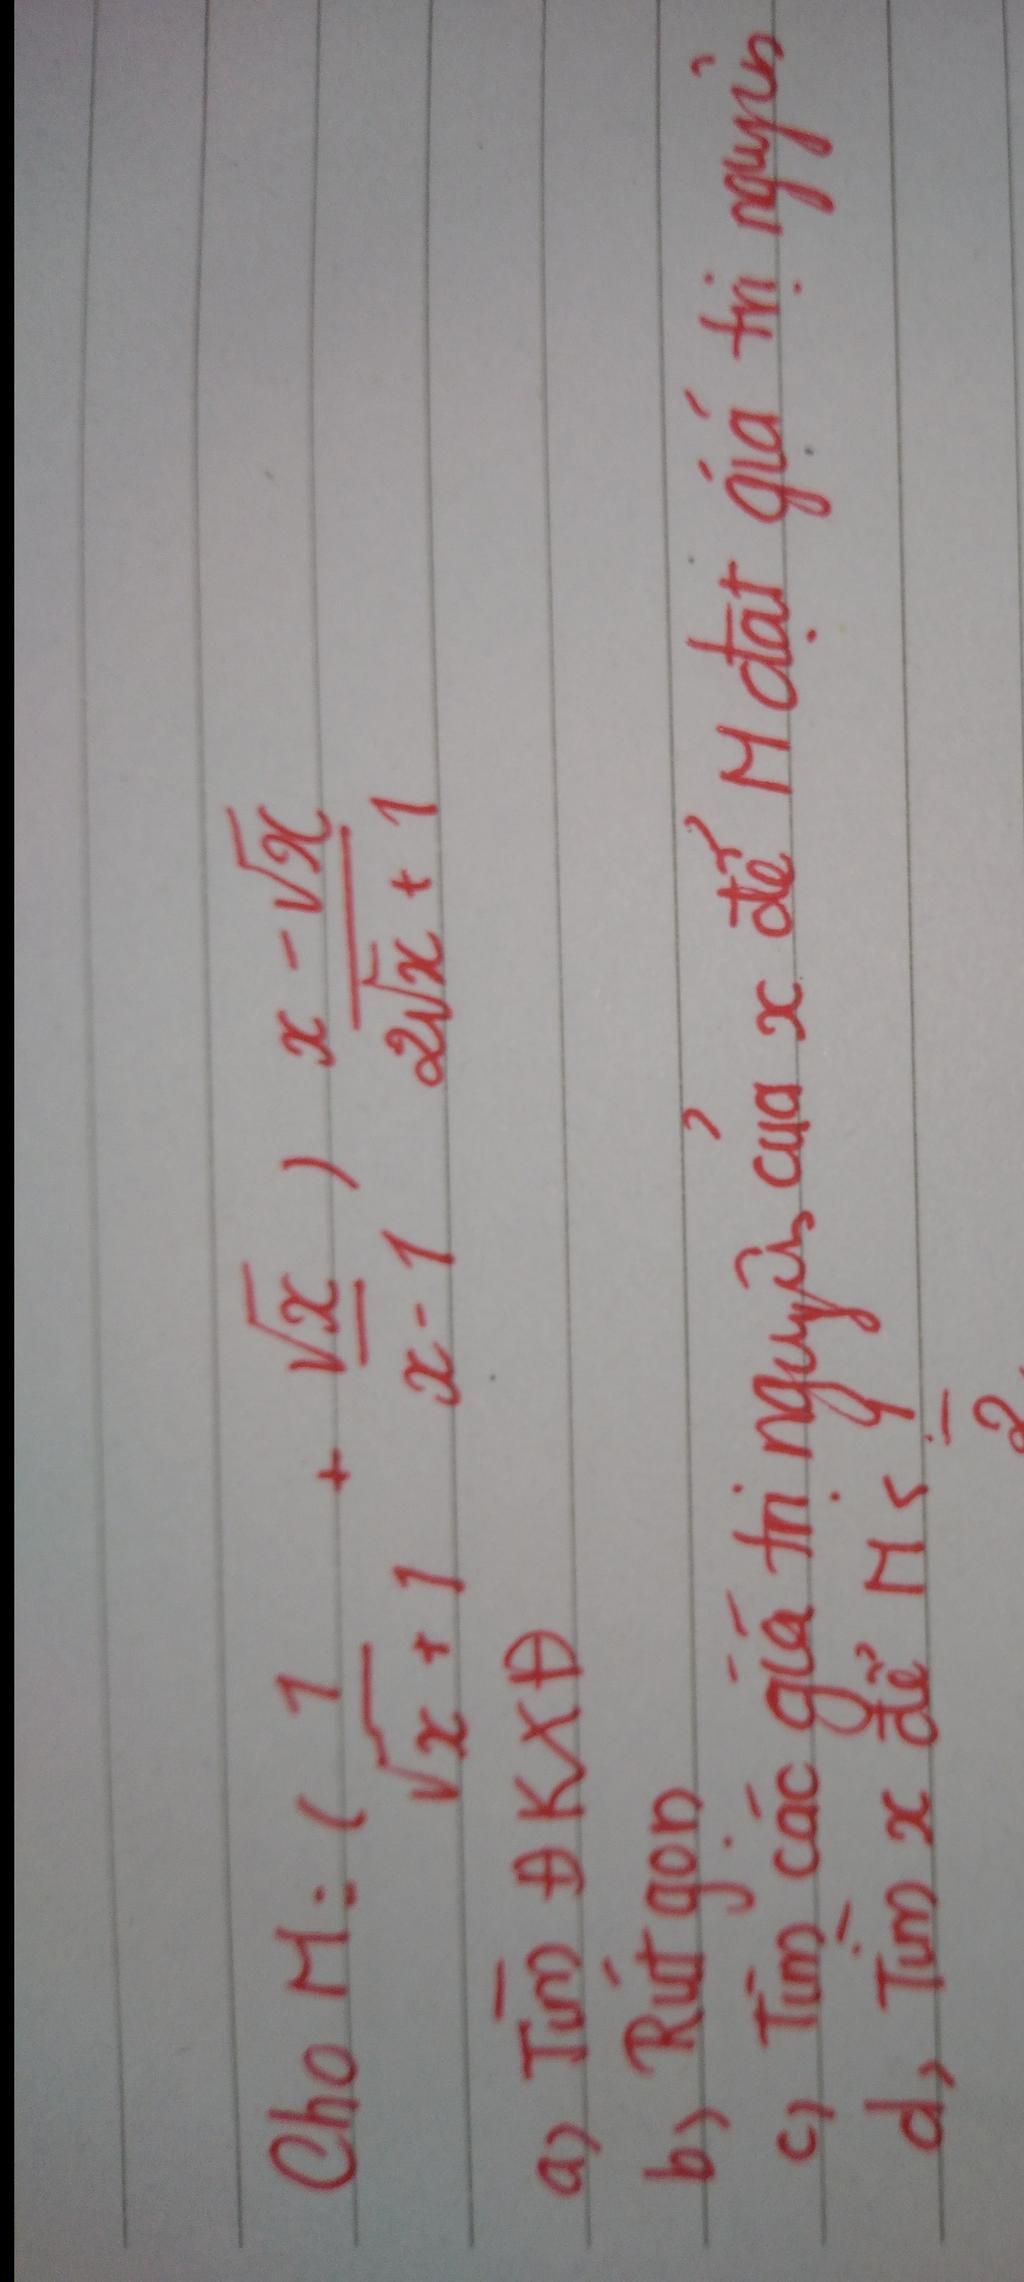 Cho M: ( 1/(√x + 1) + √x/(x - 1) ) (x - √x)/(2√x + 1)
a) Tìm ĐKXĐ
b) Rút gọn
c) Tìm các giá trị nguyên của x để M đạt giá trị nguyên
d, Tìm x để M < 1/2